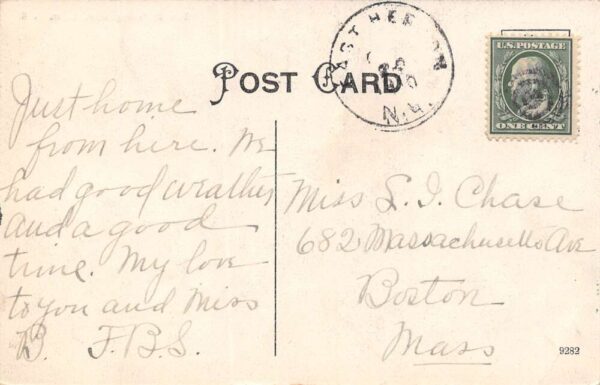 POST CARD
EAST HEBRON
N.H.
U.S. POSTAGE
ONE CENT
Just home
from here. We
had good weather
and a good
time. My love
to you and Miss
B. F.B.S.
Miss L. J. Chase
682 Massachusetts Ave
Boston
Mass
9282